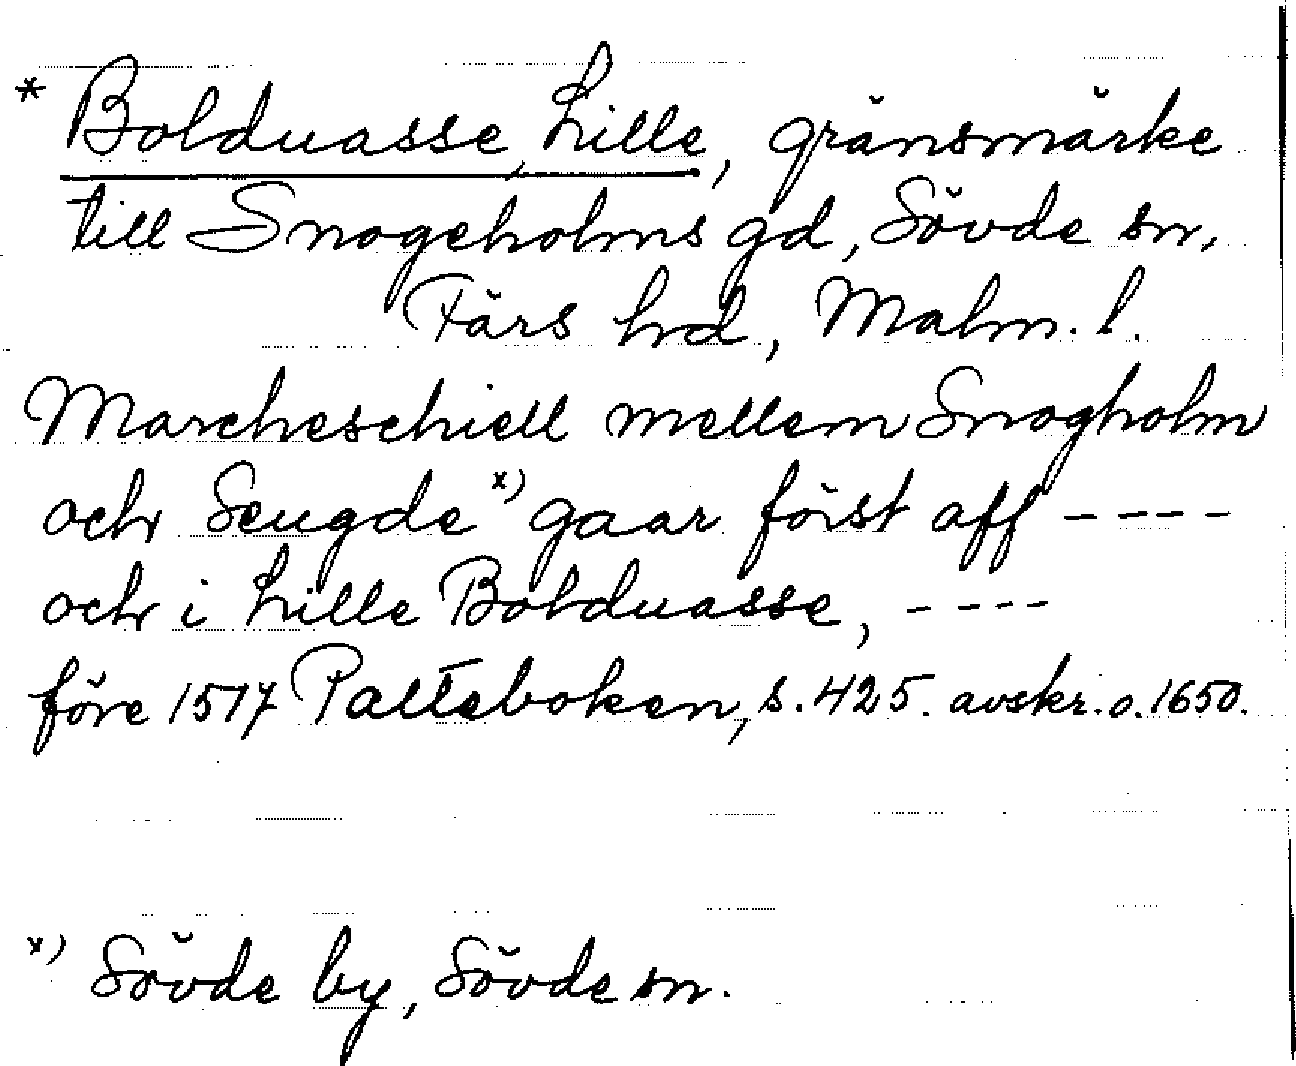 * Bolduasse, Lille, gränsmärke
till Snogeholms gd, Sövde sn,
Färs hd, Malm. l.
Marcheschiell mellem Snogholm
och Seugde x) gaar först aff ----
och i Lille Bolduasse, ----
före 1517 Palteboken, s. 425. avskr. o. 1650.
x) Sövde by, Sövde sn.